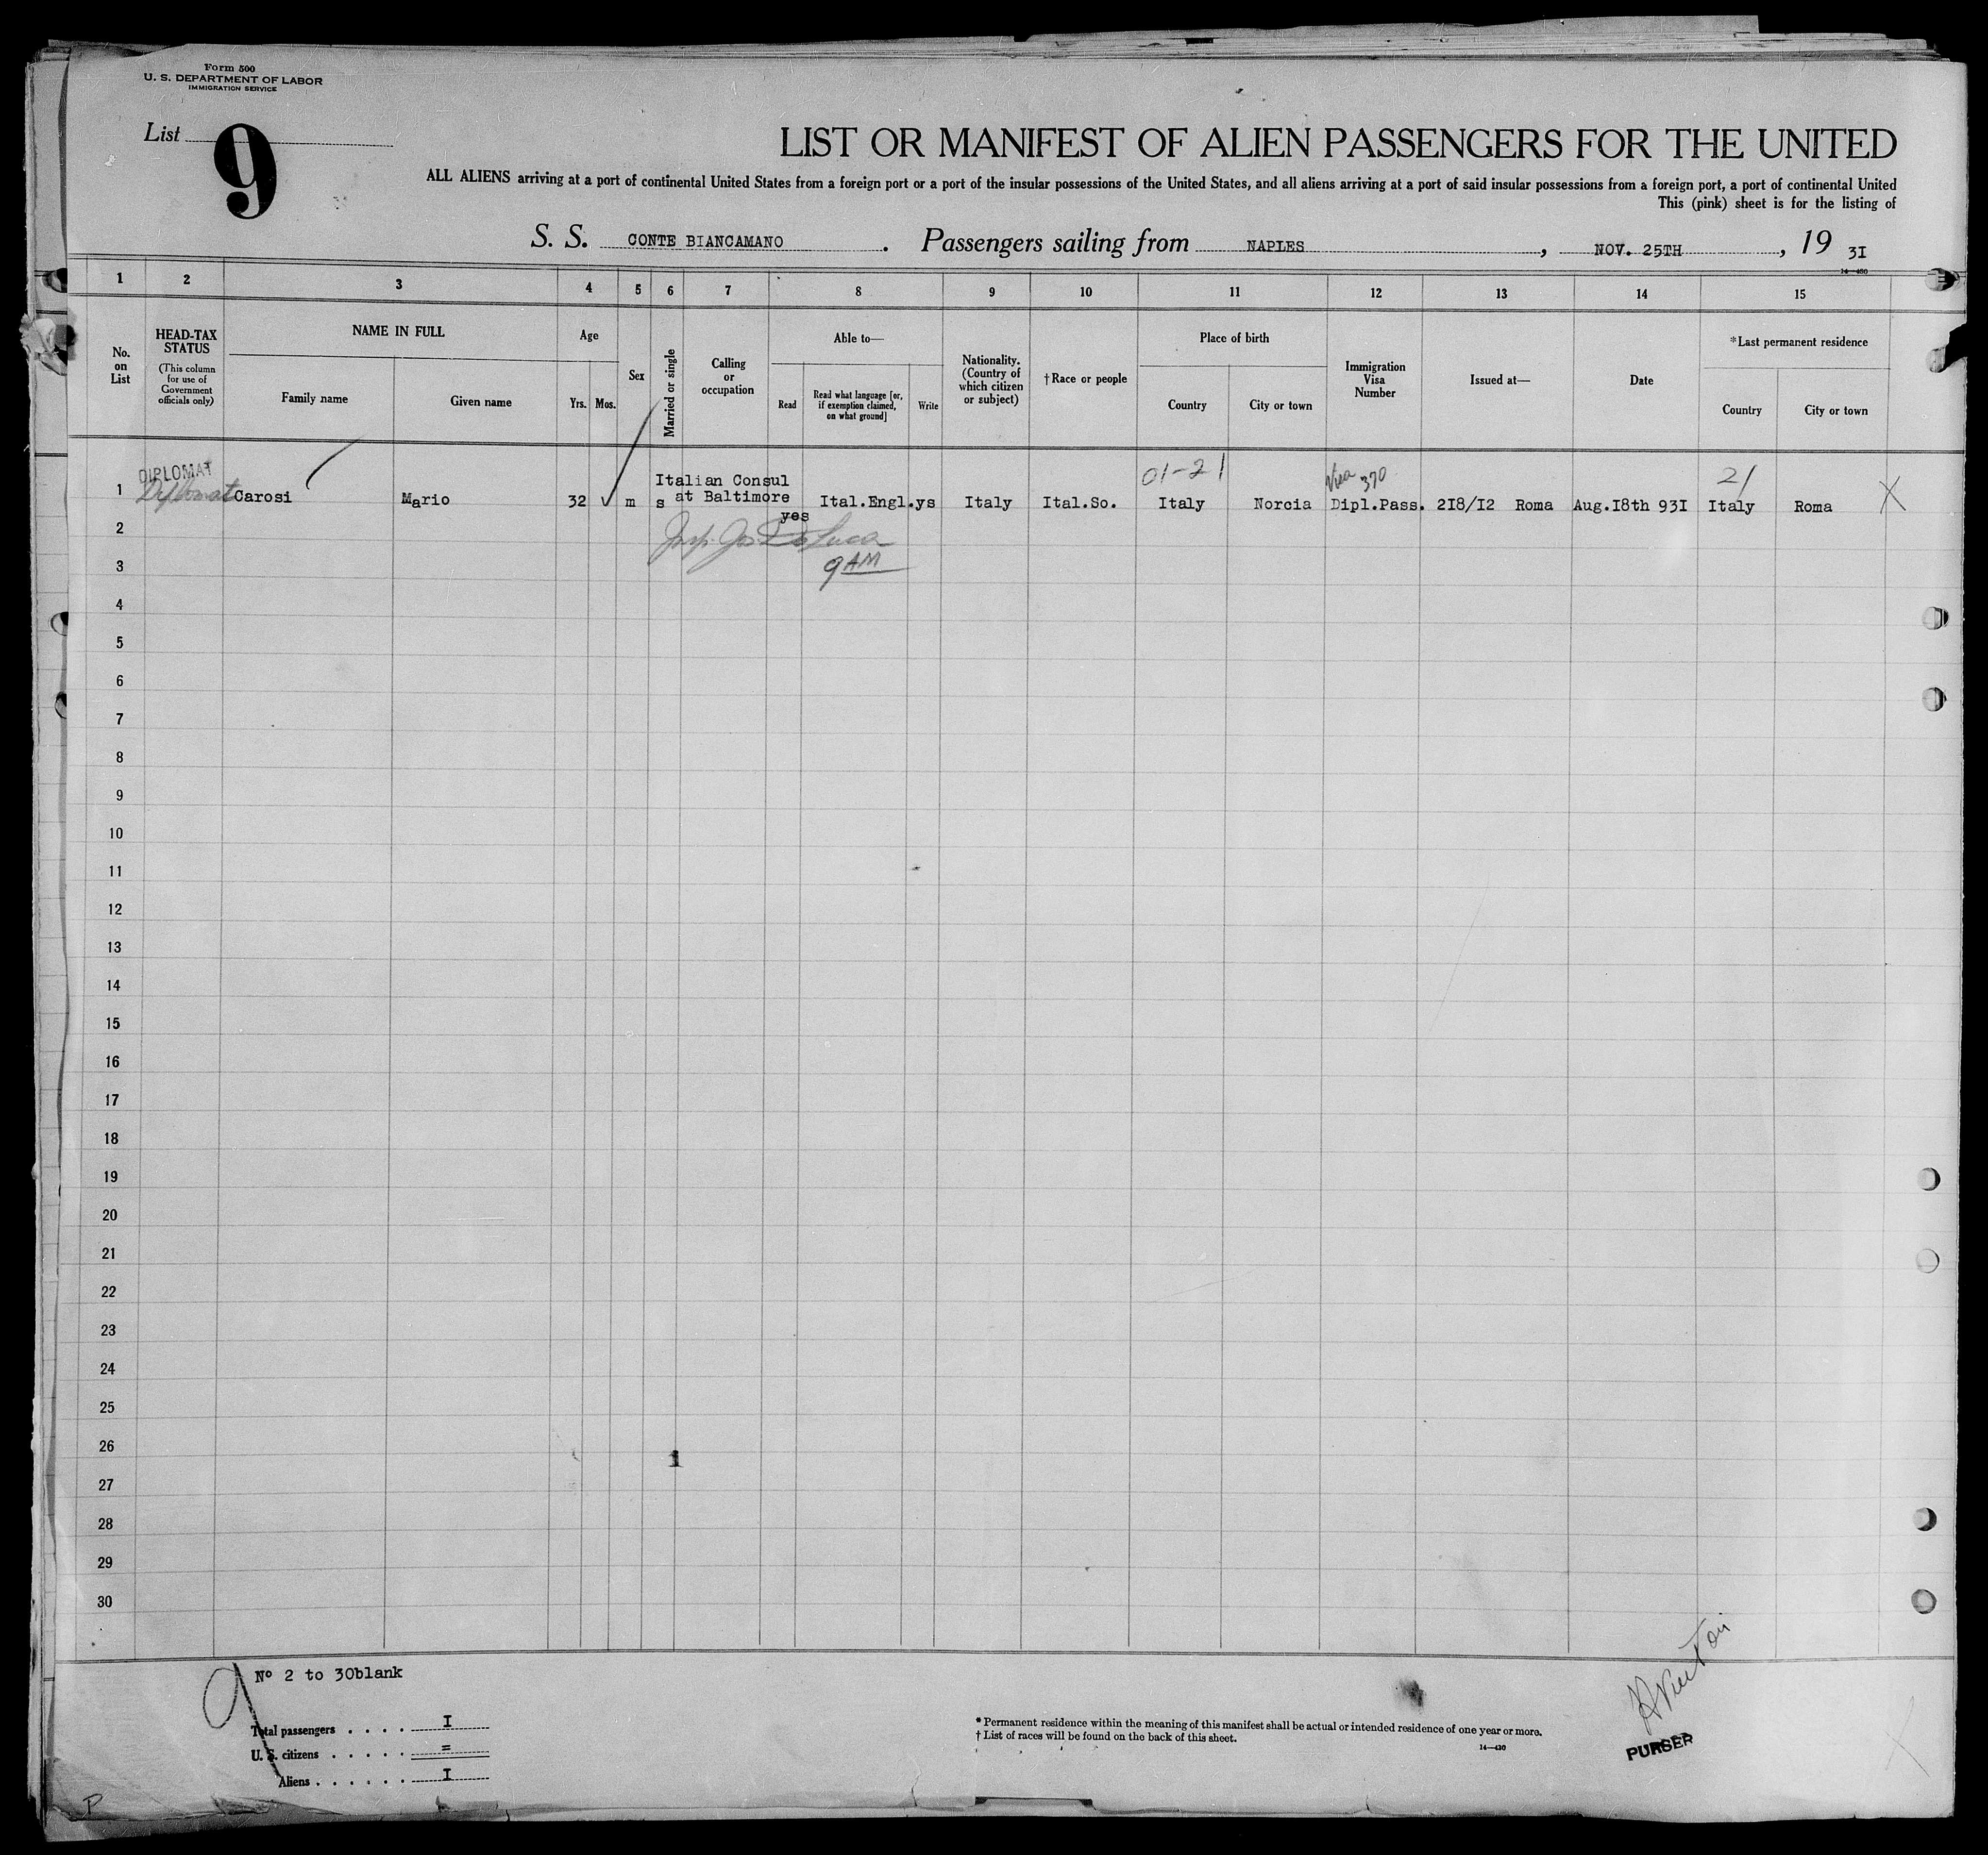 Form 500
U. S. DEPARTMENT OF LABOR
IMMIGRATION SERVICE
List 9
LIST OR MANIFEST OF ALIEN PASSENGERS FOR THE UNITED
ALL ALIENS arriving at a port of continental United States from a foreign port or a port of the insular possessions of the United States, and all aliens arriving at a port of said insular possessions from a foreign port, a port of continental United
This (pink) sheet is for the listing of
S. S. CONTE BIANCAMANO . Passengers sailing from NAPLES , NOV. 25TH , 19 3I
1 2 3 4 5 6 7 8 9 10 11 12 13 14 15
No. on List
HEAD-TAX STATUS
(This column for use of Government officials only)
NAME IN FULL
Family name
Given name
Age
Yrs. Mos.
Sex
Married or single
Calling or occupation
Able to—
Read
Read what language [or, if exemption claimed, on what ground]
Write
Nationality. (Country of which citizen or subject)
†Race or people
Place of birth
Country
City or town
Immigration Visa Number
Issued at—
Date
*Last permanent residence
Country
City or town
DIPLOMAT
01-21
Visa 370
21
1 Diplomat Carosi Mario 32 m s Italian Consul at Baltimore yes Ital.Engl.ys Italy Ital.So. Italy Norcia Dipl.Pass. 2I8/I2 Roma Aug.I8th 93I Italy Roma X
2
9 AM
3
4
5
6
7
8
9
10
11
12
13
14
15
16
17
18
19
20
21
22
23
24
25
26
27
28
29
30
Nº 2 to 30blank
Total passengers . . . . I
U. S. citizens . . . . . =
Aliens . . . . . . I
* Permanent residence within the meaning of this manifest shall be actual or intended residence of one year or more.
† List of races will be found on the back of this sheet.
PURSER
P